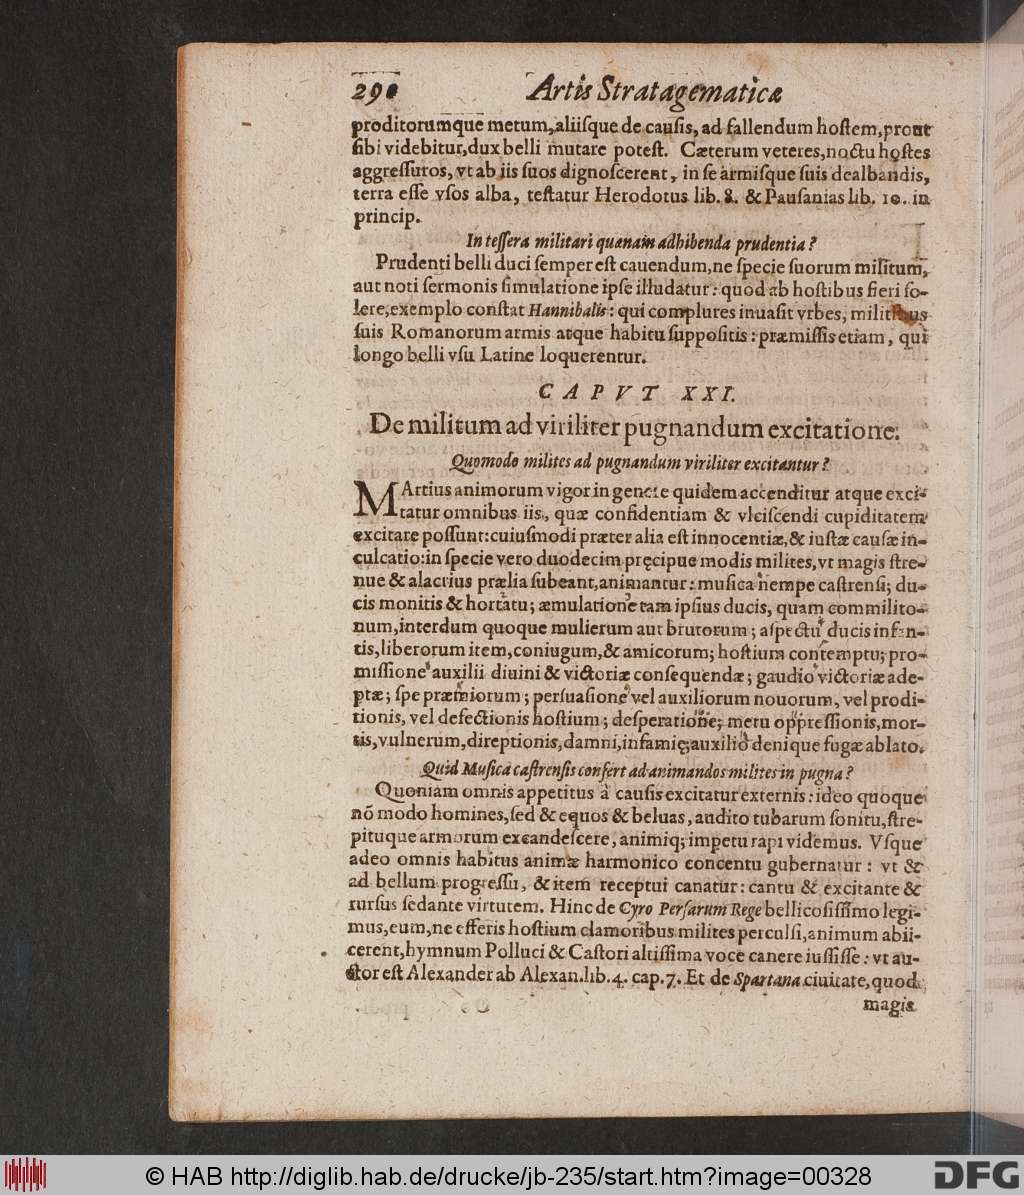 290 Artis Stratagematicæ
proditorumque metum, aliiſque de cauſis, ad fallendum hoſtem, prout
ſibi videbitur, dux belli mutare poteſt. Cæterum veteres, noctu hoſtes
aggreſſuros, vt ab iis ſuos dignoſcerent, in ſe armiſque ſuis dealbandis,
terra eſſe vſos alba, teſtatur Herodotus lib. 8. & Pauſanias lib. 10. in
princip.
In teſſera militari quænam adhibenda prudentia?
Prudenti belli duci ſemper eſt cauendum, ne ſpecie ſuorum militum,
aut noti ſermonis ſimulatione ipſe illudatur: quod ab hoſtibus fieri ſo-
lere, exemplo conſtat Hannibalis: qui complures inuaſit vrbes, militibus
ſuis Romanorum armis atque habitu ſuppoſitis: præmiſſis etiam, qui
longo belli vſu Latine loquerentur.
CAPVT XXI.
De militum ad viriliter pugnandum excitatione.
Quomodo milites ad pugnandum viriliter excitantur?
MArtius animorum vigor in genere quidem accenditur atque exci-
tatur omnibus iis, quæ confidentiam & vlciſcendi cupiditatem
excitare poſſunt: cuiuſmodi præter alia eſt innocentiæ, & iuſtæ cauſæ in-
culcatio: in ſpecie vero duodecim pręcipue modis milites, vt magis ſtre-
nue & alacrius prælia ſubeant, animantur: muſica nempe caſtrenſi; du-
cis monitis & hortatu; æmulatione tam ipſius ducis, quam commilito-
num, interdum quoque mulierum aut brutorum; aſpectu ducis infan-
tis, liberorum item, coniugum, & amicorum; hoſtium contemptu; pro-
miſſione auxilii diuini & victoriæ conſequendæ; gaudio victoriæ ade-
ptæ; ſpe præmiorum; perſuaſione vel auxiliorum nouorum, vel prodi-
tionis, vel defectionis hoſtium; deſperatione; metu oppreſſionis, mor-
tis, vulnerum, direptionis, damni, infamię; auxilio denique fugæ ablato.
Quid Muſica caſtrenſis confert ad animandos milites in pugna?
Quoniam omnis appetitus à cauſis excitatur externis: ideo quoque
nō modo homines, ſed & equos & beluas, audito tubarum ſonitu, ſtre-
pituque armorum excandeſcere, animiq; impetu rapi videmus. Vſque
adeo omnis habitus animæ harmonico concentu gubernatur: vt &
ad bellum progreſſu, & item receptui canatur: cantu & excitante &
rurſus ſedante virtutem. Hinc de Cyro Perſarum Rege bellicoſiſſimo legi-
mus, eum, ne efferis hoſtium clamoribus milites perculſi, animum abii-
cerent, hymnum Polluci & Caſtori altiſſima voce canere iuſſiſſe: vt au-
ctor eſt Alexander ab Alexan. lib. 4. cap. 7. Et de Spartana ciuitate, quod
magis
© HAB http://diglib.hab.de/drucke/jb-235/start.htm?image=00328
DFG